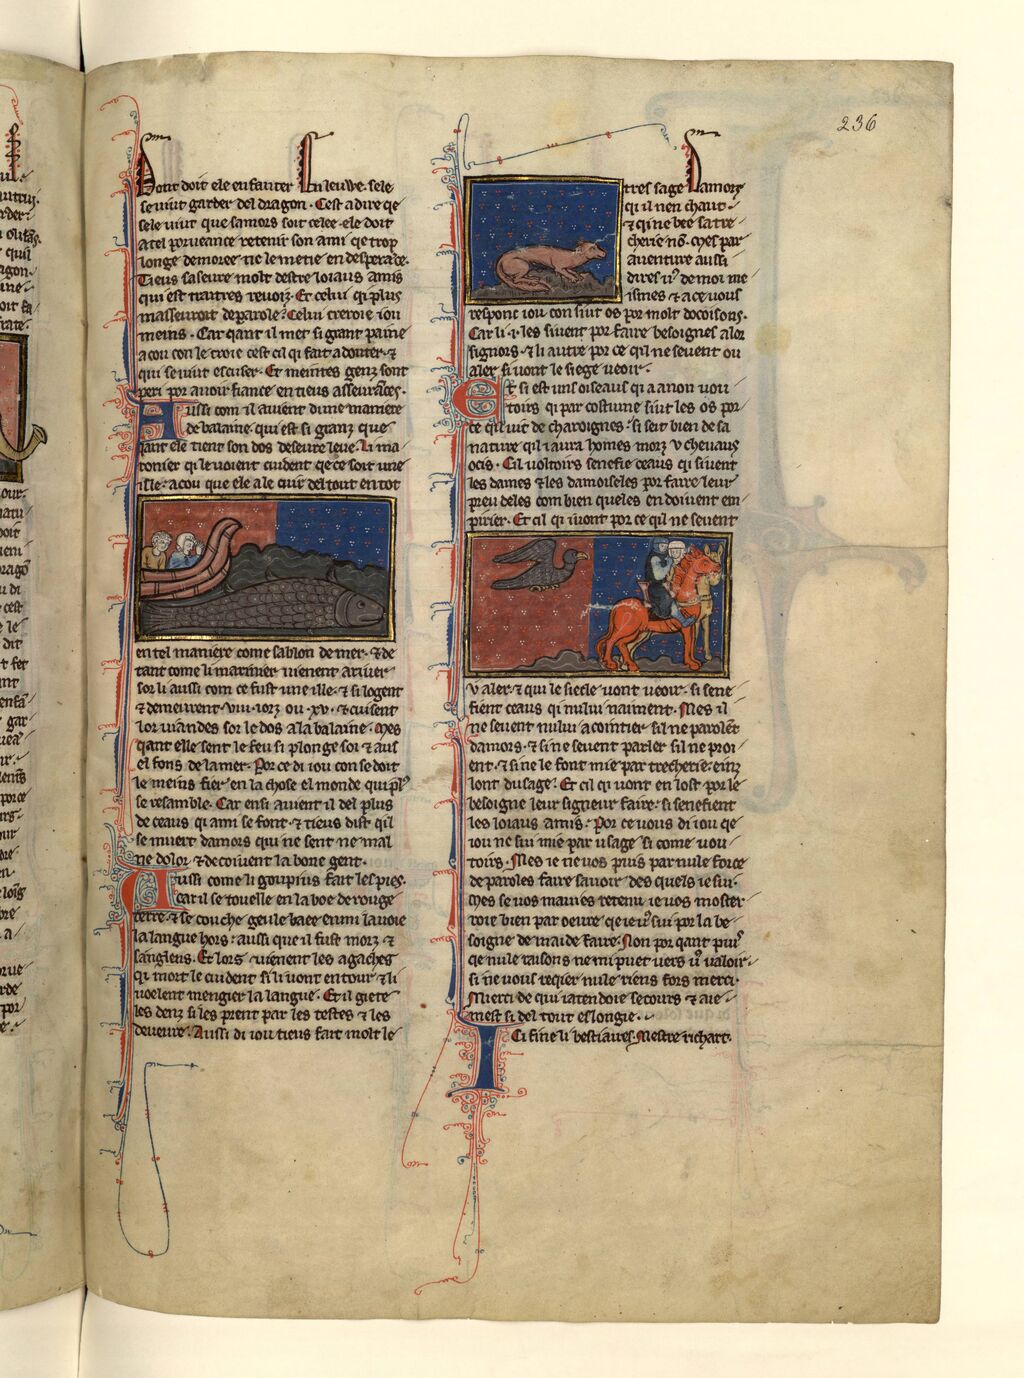 236
Dont doit ele enfanter En leuwe. sele
se uiut garder del dragon. Cest a dire qe
sele uiut que samors soit celee. ele doit
a tel porueance retenir son ami qe trop
longe demoree ne le mete en desperace.
Tieus sasseure molt destre loiaus amis
qui est traitres
Et celui qi plus
masseuroit de parole. Celui creroie iou
meins. Car qant il met si grant paine
a cou con le croie cest cil qi fait a douter. &
qui se uiut escuser. Et meintes genz sont
peri por auoir fiance en tieus asseurāces.
Aussi com il auient dune maniere
de balaine. qui est si granz que
qant ele tient son dos deseure leue. Li ma
ronier qi le uoient cuident qe ce soit une
isle. a cou que ele a le cuir del tout en tot
en tel maniere come sablon de mer. & de
tant come li marinier uienent ariuer
sor li aussi com ce fust une ille. & si logent
& demeurent .viii. iorz ou .xv. & cuisent
lor uiandes sor le dos a la balaine. Mes
qant elle sent le feu si plonge soi & aus
el fons de la mer. Por ce di iou con se doit
le meins fier en la chose el monde qui pl᷒
se resamble. Car ensi auient il del plus
de ceaus qi ami se font. & tieus dist qil
se muert damors qui ne sent ne mal
ne dolor. & decoiuent la bone gent.
Aussi come li goupius fait les pies.
Car il se touelle en la boe de rouge
terre. & se couche geule baee enmi la uoie
la langue hors. aussi que il fust morz &
sanglens. Et lors uienent les agaches
qi mort le cuident si li uont entour & li
uoelent mengier la langue. Et il giete
les denz si les prent par les testes & les
deueure. Aussi di iou tieus fait molt le
tres sage Damors
qu il nen chaut.
& qi ne bee sa tre
cherie nō. Mes par
auenture aussi
dires u᷒ de moi me
ismes & a ce uous
respont iou con siut os por molt docoisons.
Car li .i. les siuent por faire besoignes a lor
signors. & li autre por ce qil ne seuent ou
aler si uont le siege ueoir.
Et si est uns oiseaus qi a a non uou
toirs qi par costume siut les os por
ce qil uit de charoignes. si set bien de sa
nature qil i aura homes morz v cheuaus
ocis. Cil uoltoirs senefie ceaus qi siuent
les dames & les damoiseles por faire leur
preu deles com bien queles en doiuent em
pirier. Et cil qi uont por ce qil ne seuent
v aler. & qui le siecle uont ueoir. si sene
fient ceaus qi nului naiment. Mes il
ne seuent nului acointier sil ne parolēt
damors. & si ne seuent parler sil ne proi
ent. & si ne le font mie par trecherie. einz
lont dusage. Et cil qi uont en lost por le
besoigne leur signeur faire. si senefient
les loiaus amis. Por ce uous di iou qe
iou ne sui mie par usage si come uou
toirs. Mes ie ne uos puis par nule force
de paroles faire sauoir des quels ie sui.
Mes se uos mauies retenu ie uos moster
roie bien par oeure qe ie u᷒ sui por la be
soigne de ma ide faire. Non por qant
qe nule raisons ne mi puet uers u᷒ ualoir.
si ne uous requier nule riens fors merci.
Merci de qui iatendoie secours & aie.
mest si del tout eslongie.
Ici fine li bestiaires. Mestre richart.